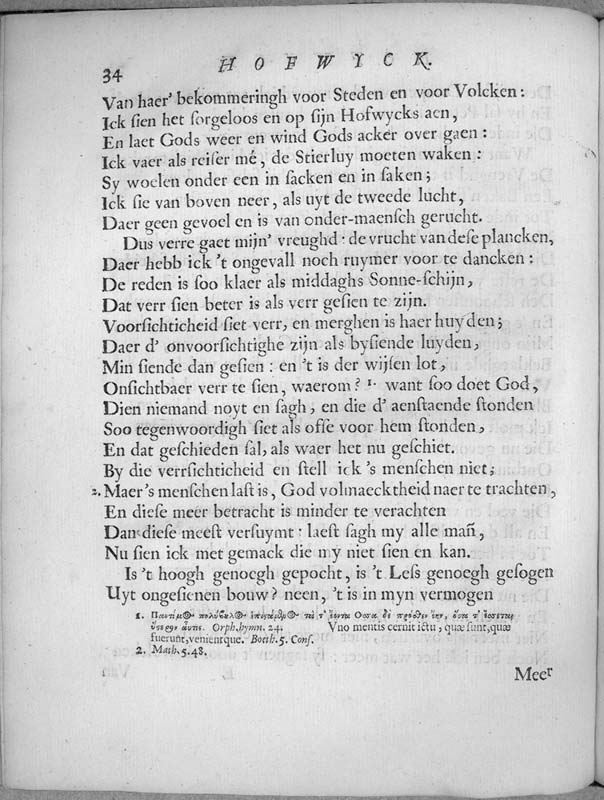 34
HOFWYCK.
Van haer' bekommeringh voor Steden en voor Volcken:
Ick sien het sorgeloos en op sijn Hofwycks aen,
En laet Gods weer en wind Gods acker over gaen:
Ick vaer als reiser mé, de Stierluy moeten waken:
Sy woelen onder een in sacken en in saken;
Ick sie van boven neer, als uyt de tweede lucht,
Daer geen gevoel en is van onder-maensch gerucht.
Dus verre gaet mijn' vreughd: de vrucht van dese plancken,
Daer hebb ick 't ongevall noch ruymer voor te dancken:
De reden is soo klaer als middaghs Sonne-schijn,
Dat verr sien beter is als verr gesien te zijn.
Voorsichticheid siet verr, en merghen is haer huyden;
Daer d' onvoorsichtighe zijn als bysiende luyden,
Min siende dan gesien: en 't is der wijsen lot,
Onsichtbaer verr te sien, waerom? 1. want soo doet God,
Dien niemand noyt en sagh, en die d' aenstaende stonden
Soo tegenwoordigh siet als offe voor hem stonden,
En dat geschieden sal, als waer het nu geschiet.
By die verrsichticheid en stell ick 's menschen niet;
2. Maer 's menschen last is, God volmaecktheid naer te trachten,
En diese meer betracht is minder te verachten
Dan diese meest versuymt: laest sagh my alle mañ,
Nu sien ick met gemack die my niet sien en kan.
Is 't hoogh genoegh gepocht, is 't Less genoegh gesogen
Uyt ongesienen bouw? neen, 't is in myn vermogen
1.
Orph. hymn. 24. Vno mentis cernit ictu, quæ sunt, quæ
fuerunt, venientque. Boeth. 5. Cons.
2. Math. 5. 48.
Meer